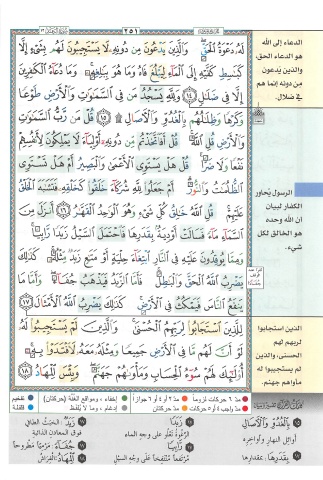 سورة الرعد ١٣
٢٥١
لَهُۥ دَعْوَةُ ٱلْحَقِّ ۖ وَٱلَّذِينَ يَدْعُونَ مِن دُونِهِۦ لَا يَسْتَجِيبُونَ لَهُم بِشَىْءٍ إِلَّا
كَبَٰسِطِ كَفَّيْهِ إِلَى ٱلْمَآءِ لِيَبْلُغَ فَاهُ وَمَا هُوَ بِبَٰلِغِهِۦ ۚ وَمَا دُعَآءُ ٱلْكَٰفِرِينَ
إِلَّا فِى ضَلَٰلٍ ١٤ وَلِلَّهِ يَسْجُدُ مَن فِى ٱلسَّمَٰوَٰتِ وَٱلْأَرْضِ طَوْعًا
وَكَرْهًا وَظِلَٰلُهُم بِٱلْغُدُوِّ وَٱلْءَاصَالِ ۩ ١٥ قُلْ مَن رَّبُّ ٱلسَّمَٰوَٰتِ
وَٱلْأَرْضِ قُلِ ٱللَّهُ ۚ قُلْ أَفَٱتَّخَذْتُم مِّن دُونِهِۦٓ أَوْلِيَآءَ لَا يَمْلِكُونَ لِأَنفُسِهِمْ
نَفْعًا وَلَا ضَرًّا ۚ قُلْ هَلْ يَسْتَوِى ٱلْأَعْمَىٰ وَٱلْبَصِيرُ أَمْ هَلْ تَسْتَوِى
ٱلظُّلُمَٰتُ وَٱلنُّورُ ۗ أَمْ جَعَلُوا۟ لِلَّهِ شُرَكَآءَ خَلَقُوا۟ كَخَلْقِهِۦ فَتَشَٰبَهَ ٱلْخَلْقُ
عَلَيْهِمْ ۚ قُلِ ٱللَّهُ خَٰلِقُ كُلِّ شَىْءٍ وَهُوَ ٱلْوَٰحِدُ ٱلْقَهَّٰرُ ١٦ أَنزَلَ مِنَ
ٱلسَّمَآءِ مَآءً فَسَالَتْ أَوْدِيَةٌۢ بِقَدَرِهَا فَٱحْتَمَلَ ٱلسَّيْلُ زَبَدًا رَّابِيًا ۚ
وَمِمَّا يُوقِدُونَ عَلَيْهِ فِى ٱلنَّارِ ٱبْتِغَآءَ حِلْيَةٍ أَوْ مَتَٰعٍ زَبَدٌ مِّثْلُهُۥ ۚ كَذَٰلِكَ
يَضْرِبُ ٱللَّهُ ٱلْحَقَّ وَٱلْبَٰطِلَ ۚ فَأَمَّا ٱلزَّبَدُ فَيَذْهَبُ جُفَآءً ۖ وَأَمَّا مَا
يَنفَعُ ٱلنَّاسَ فَيَمْكُثُ فِى ٱلْأَرْضِ ۚ كَذَٰلِكَ يَضْرِبُ ٱللَّهُ ٱلْأَمْثَالَ ١٧
لِلَّذِينَ ٱسْتَجَابُوا۟ لِرَبِّهِمُ ٱلْحُسْنَىٰ ۚ وَٱلَّذِينَ لَمْ يَسْتَجِيبُوا۟ لَهُۥ
لَوْ أَنَّ لَهُم مَّا فِى ٱلْأَرْضِ جَمِيعًا وَمِثْلَهُۥ مَعَهُۥ لَٱفْتَدَوْا۟ بِهِۦٓ ۚ
أُو۟لَٰٓئِكَ لَهُمْ سُوٓءُ ٱلْحِسَابِ وَمَأْوَىٰهُمْ جَهَنَّمُ ۖ وَبِئْسَ ٱلْمِهَادُ ١٨
الدعاء إلى الله
هو الدعاء الحق،
والذين يَدعون
مِن دونه إنما هم
في ضلال.
الرسول يُحاور
الكفار لبيان
ان الله وحده
هو الخالق لكل
شيء.
الذين استجابوا
لربهم لهم
الحسنى، والذين
لم يستجيبوا له
مأواهم جهنم.
مدّ ٦ حركات لزوماً
مدّ ٢ أو ٤ أو ٦ جوازاً
إخفاء، ومواقع الغُنَّة (حركتان)
تفخيم
مدّ حركتان
إدغام، وما لا يُلفَظ
قلقلة
بِٱلْغُدُوِّ وَٱلْءَاصَالِ
أوائل النهار وأواخره
بِقَدَرِهَا: بمقدارها
زَبَدًا: الخَبَث الطافي
فوق المعادن الذائبة
جُفَآءً: مَرْمِيًّا مطروحاً
ٱلْمِهَادُ: الفِرَاش